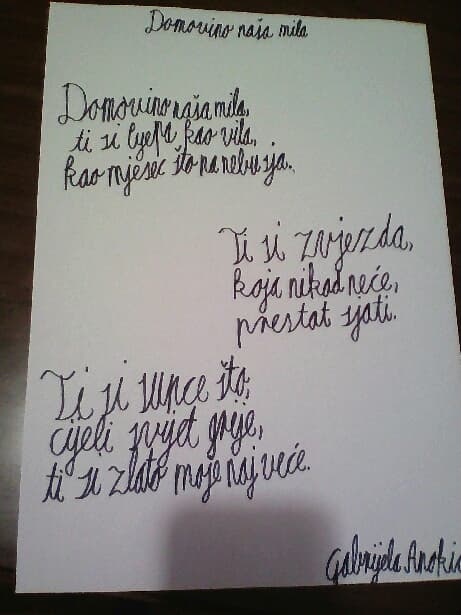 Domovino naša mila
Domovino naša mila,
ti si lijepa kao vila,
kao mjesec što na nebu sja.
Ti si zvjezda,
koja nikad neće,
prestat sjati.
Ti si sunce što,
cijeli svijet grije,
ti si zlato moje naj veće.
Gabrijela Anokić